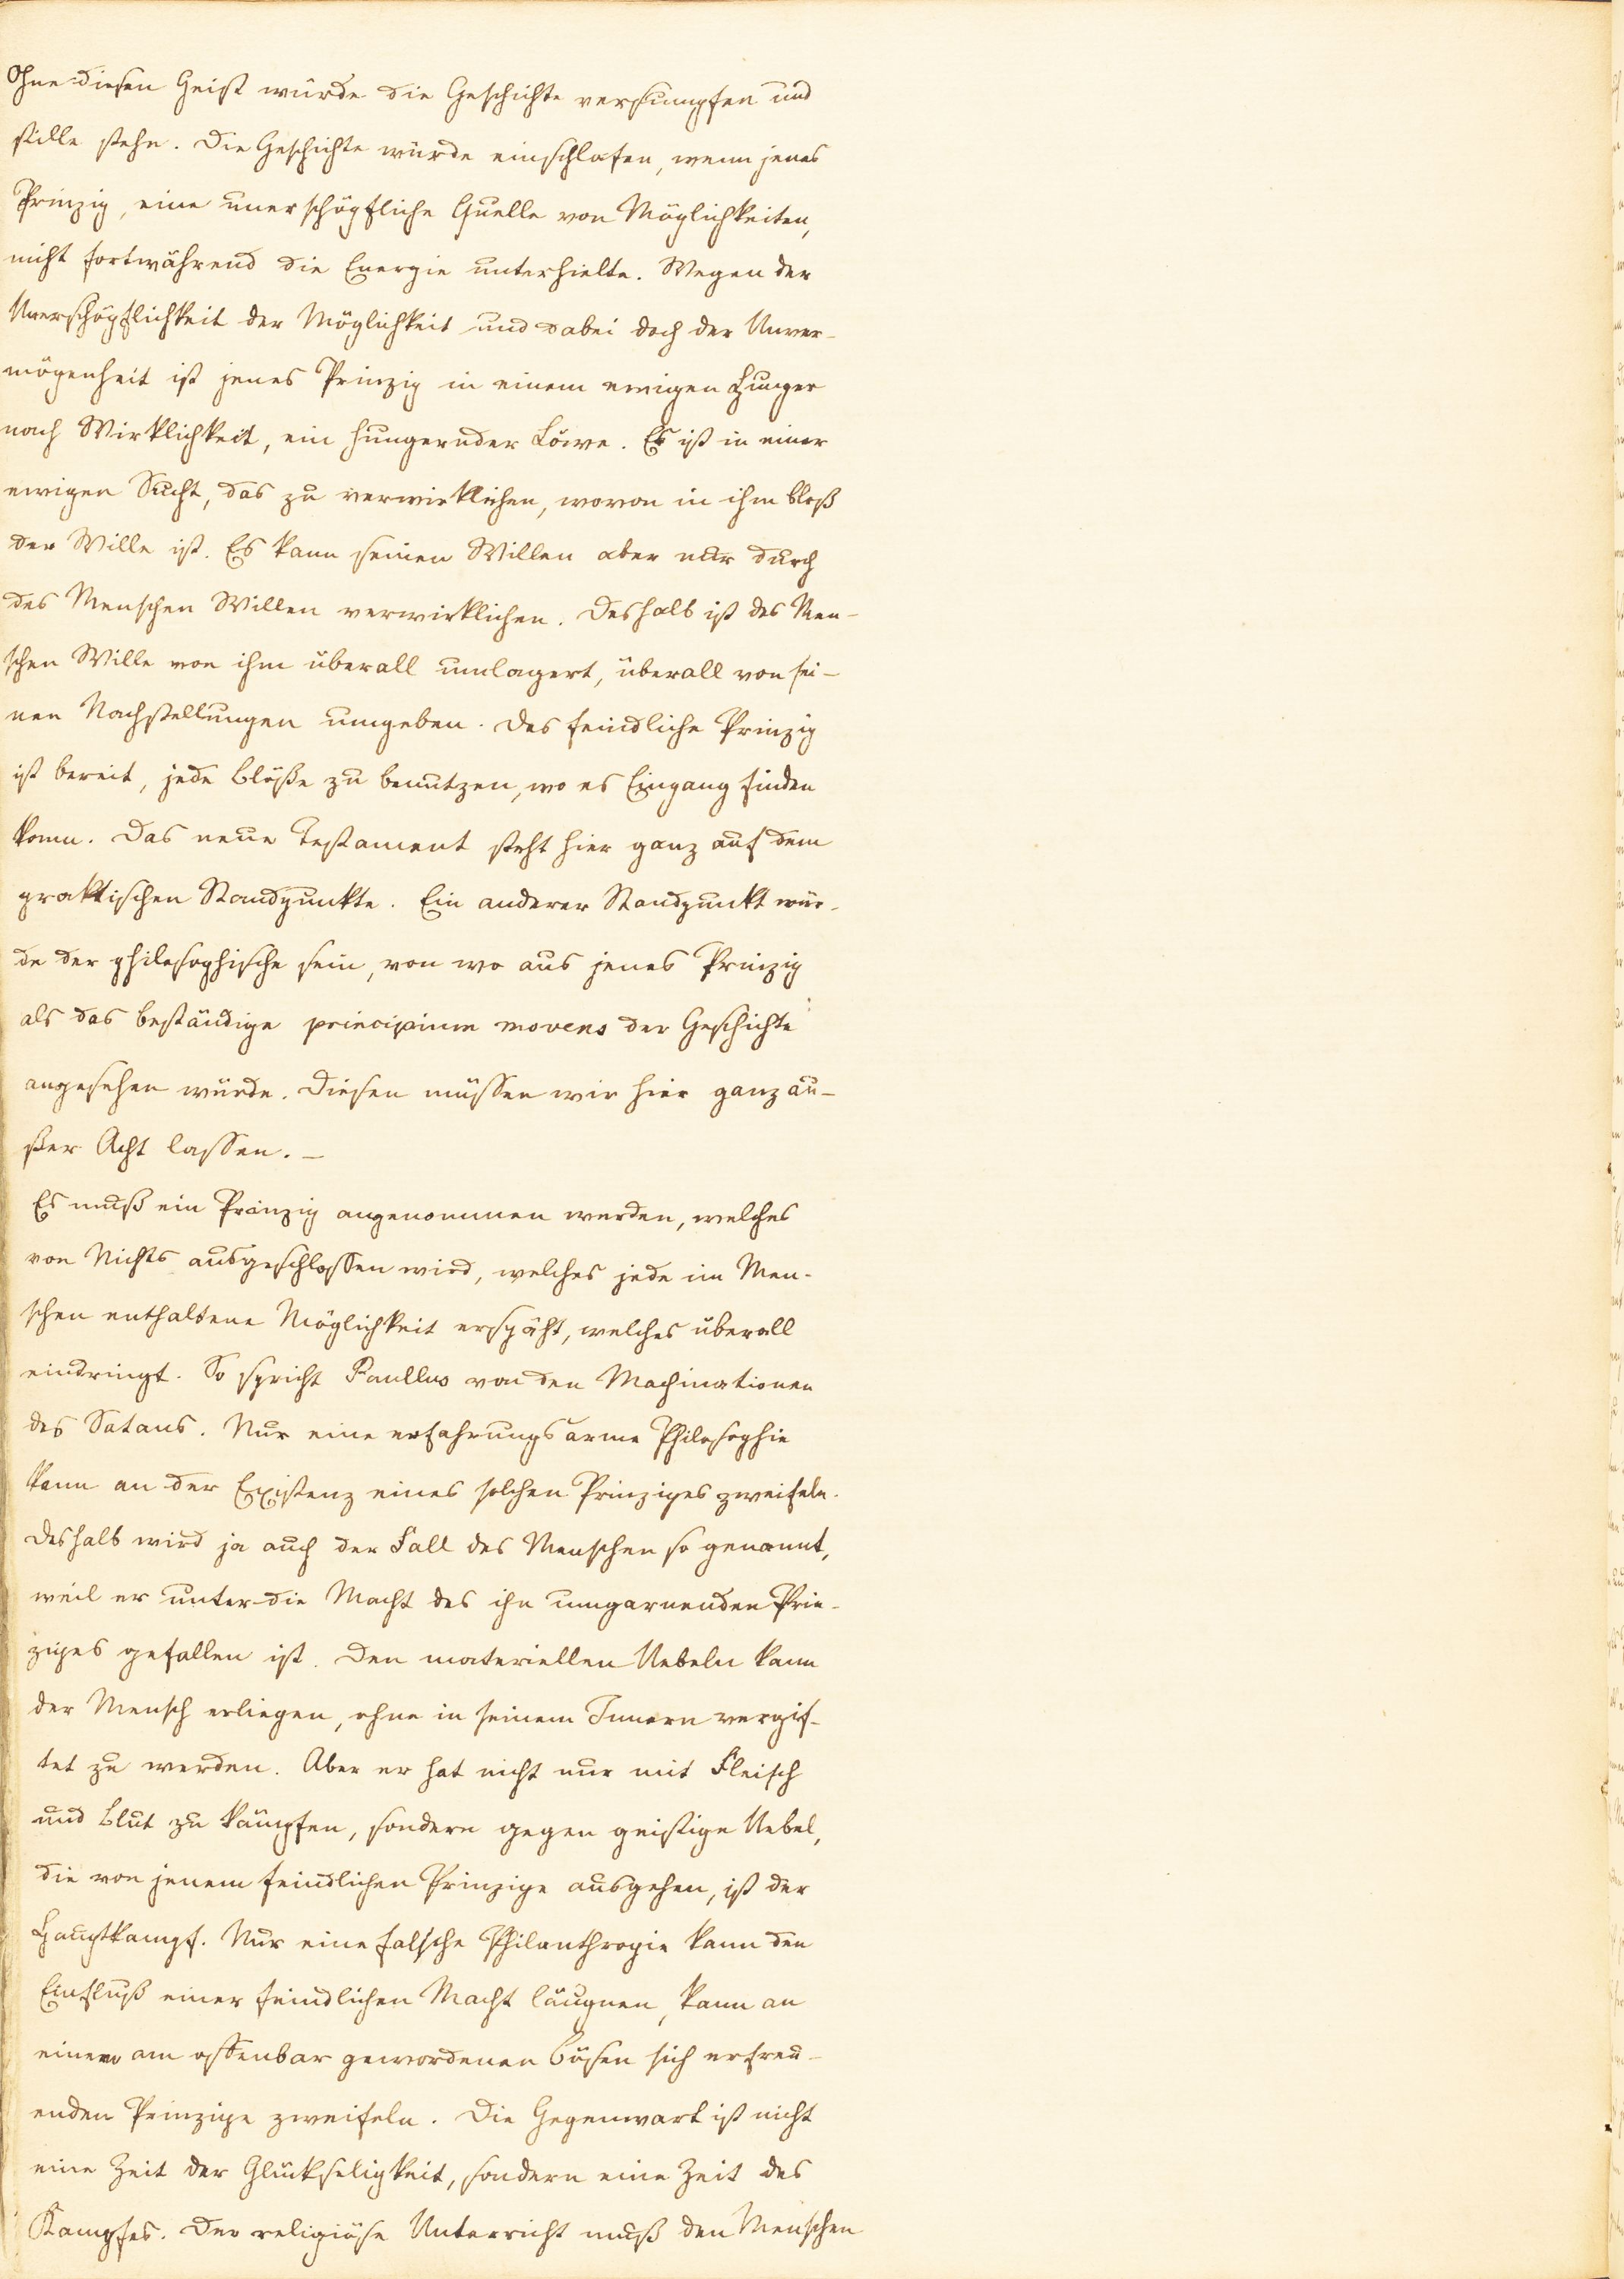 Ohne diesen Geist würde die Geschichte versumpfen und
stille stehn. Die Geschichte würde einschlafen, wenn jenes
Prinzip, eine unerschöpfliche Quelle von Möglichkeiten,
nicht fortwährend die Energie unterhielte. Wegen der
Unerschöpflichkeit der Möglichkeit und dabei doch der Unver-
mögenheit ist jenes Prinzip in einem ewigen Hunger
nach Wirklichkeit, ein hungernder Löwe. Es ist in einer
ewigen Sucht, das zu verwirklichen, wovon in ihm bloß
der Wille ist. Es kann seinen Willen aber nur durch
des Menschen Willen verwirklichen. Deshalb ist des Men-
schen Wille von ihm überall umlagert, überall von sei-
nen Nachstellungen umgeben. Das feindliche Prinzip
ist bereit, jede Blöße zu benutzen, wo es Eingang finden
kann. Das neue Testament steht hier ganz auf dem
praktischen Standpunkte. Ein anderer Standpunkt wür-
de der philosophische sein, von wo aus jenes Prinzip
als das beständige principium movens der Geschichte
angesehen würde. Diesen müssen wir hier ganz au-
ßer Acht lassen. —
Es muß ein Prinzip angenommen werden, welches
von Nichts ausgeschlossen wird, welches jede im Men-
schen enthaltene Möglichkeit erspäht, welches überall
eindringt. So spricht Paullus von den Machinationen
des Satans. Nur eine erfahrungsarme Philosophie
kann an der Existenz eines solchen Prinzipes zweifeln.
Deshalb wird ja auch der Fall des Menschen so genannt,
weil er unter die Macht des ihn umgarnenden Prin-
zipes gefallen ist. Den materiellen Uebeln kann
der Mensch erliegen, ohne in seinem Innern vergif-
tet zu werden. Aber er hat nicht nur mit Fleisch
und Blut zu kämpfen, sondern gegen geistige Uebel,
die von jenem feindlichen Prinzipe ausgehen, ist der
Hauptkampf. Nur eine falsche Philanthropie kann den
Einfluß einer feindlichen Macht läugnen, kann an
einem am offenbar gewordenen Bösen sich erfreu-
enden Prinzipe zweifeln. Die Gegenwart ist nicht
eine Zeit der Glückseligkeit, sondern eine Zeit des
Kampfes. Der religiöse Unterricht muß den Menschen